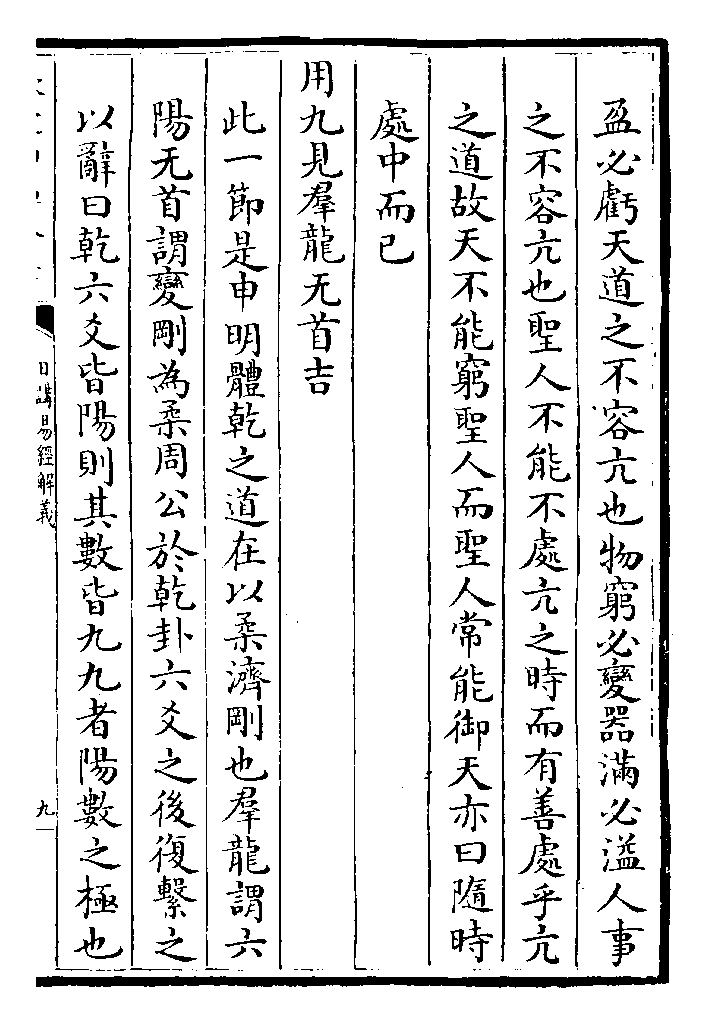 盈必虧天道之不容亢也物窮必變器滿必溢人事
之不容亢也聖人不能不處亢之時而有善處乎亢
之道故天不能窮聖人而聖人常能御天亦曰隨時
處中而已
用九見羣龍无首吉
此一節是申明體乾之道在以柔濟剛也羣龍謂六
陽无首謂變剛為柔周公於乾卦六爻之後復繫之
以辭曰乾六爻皆陽則其數皆九九者陽數之極也
日講易經解義
九